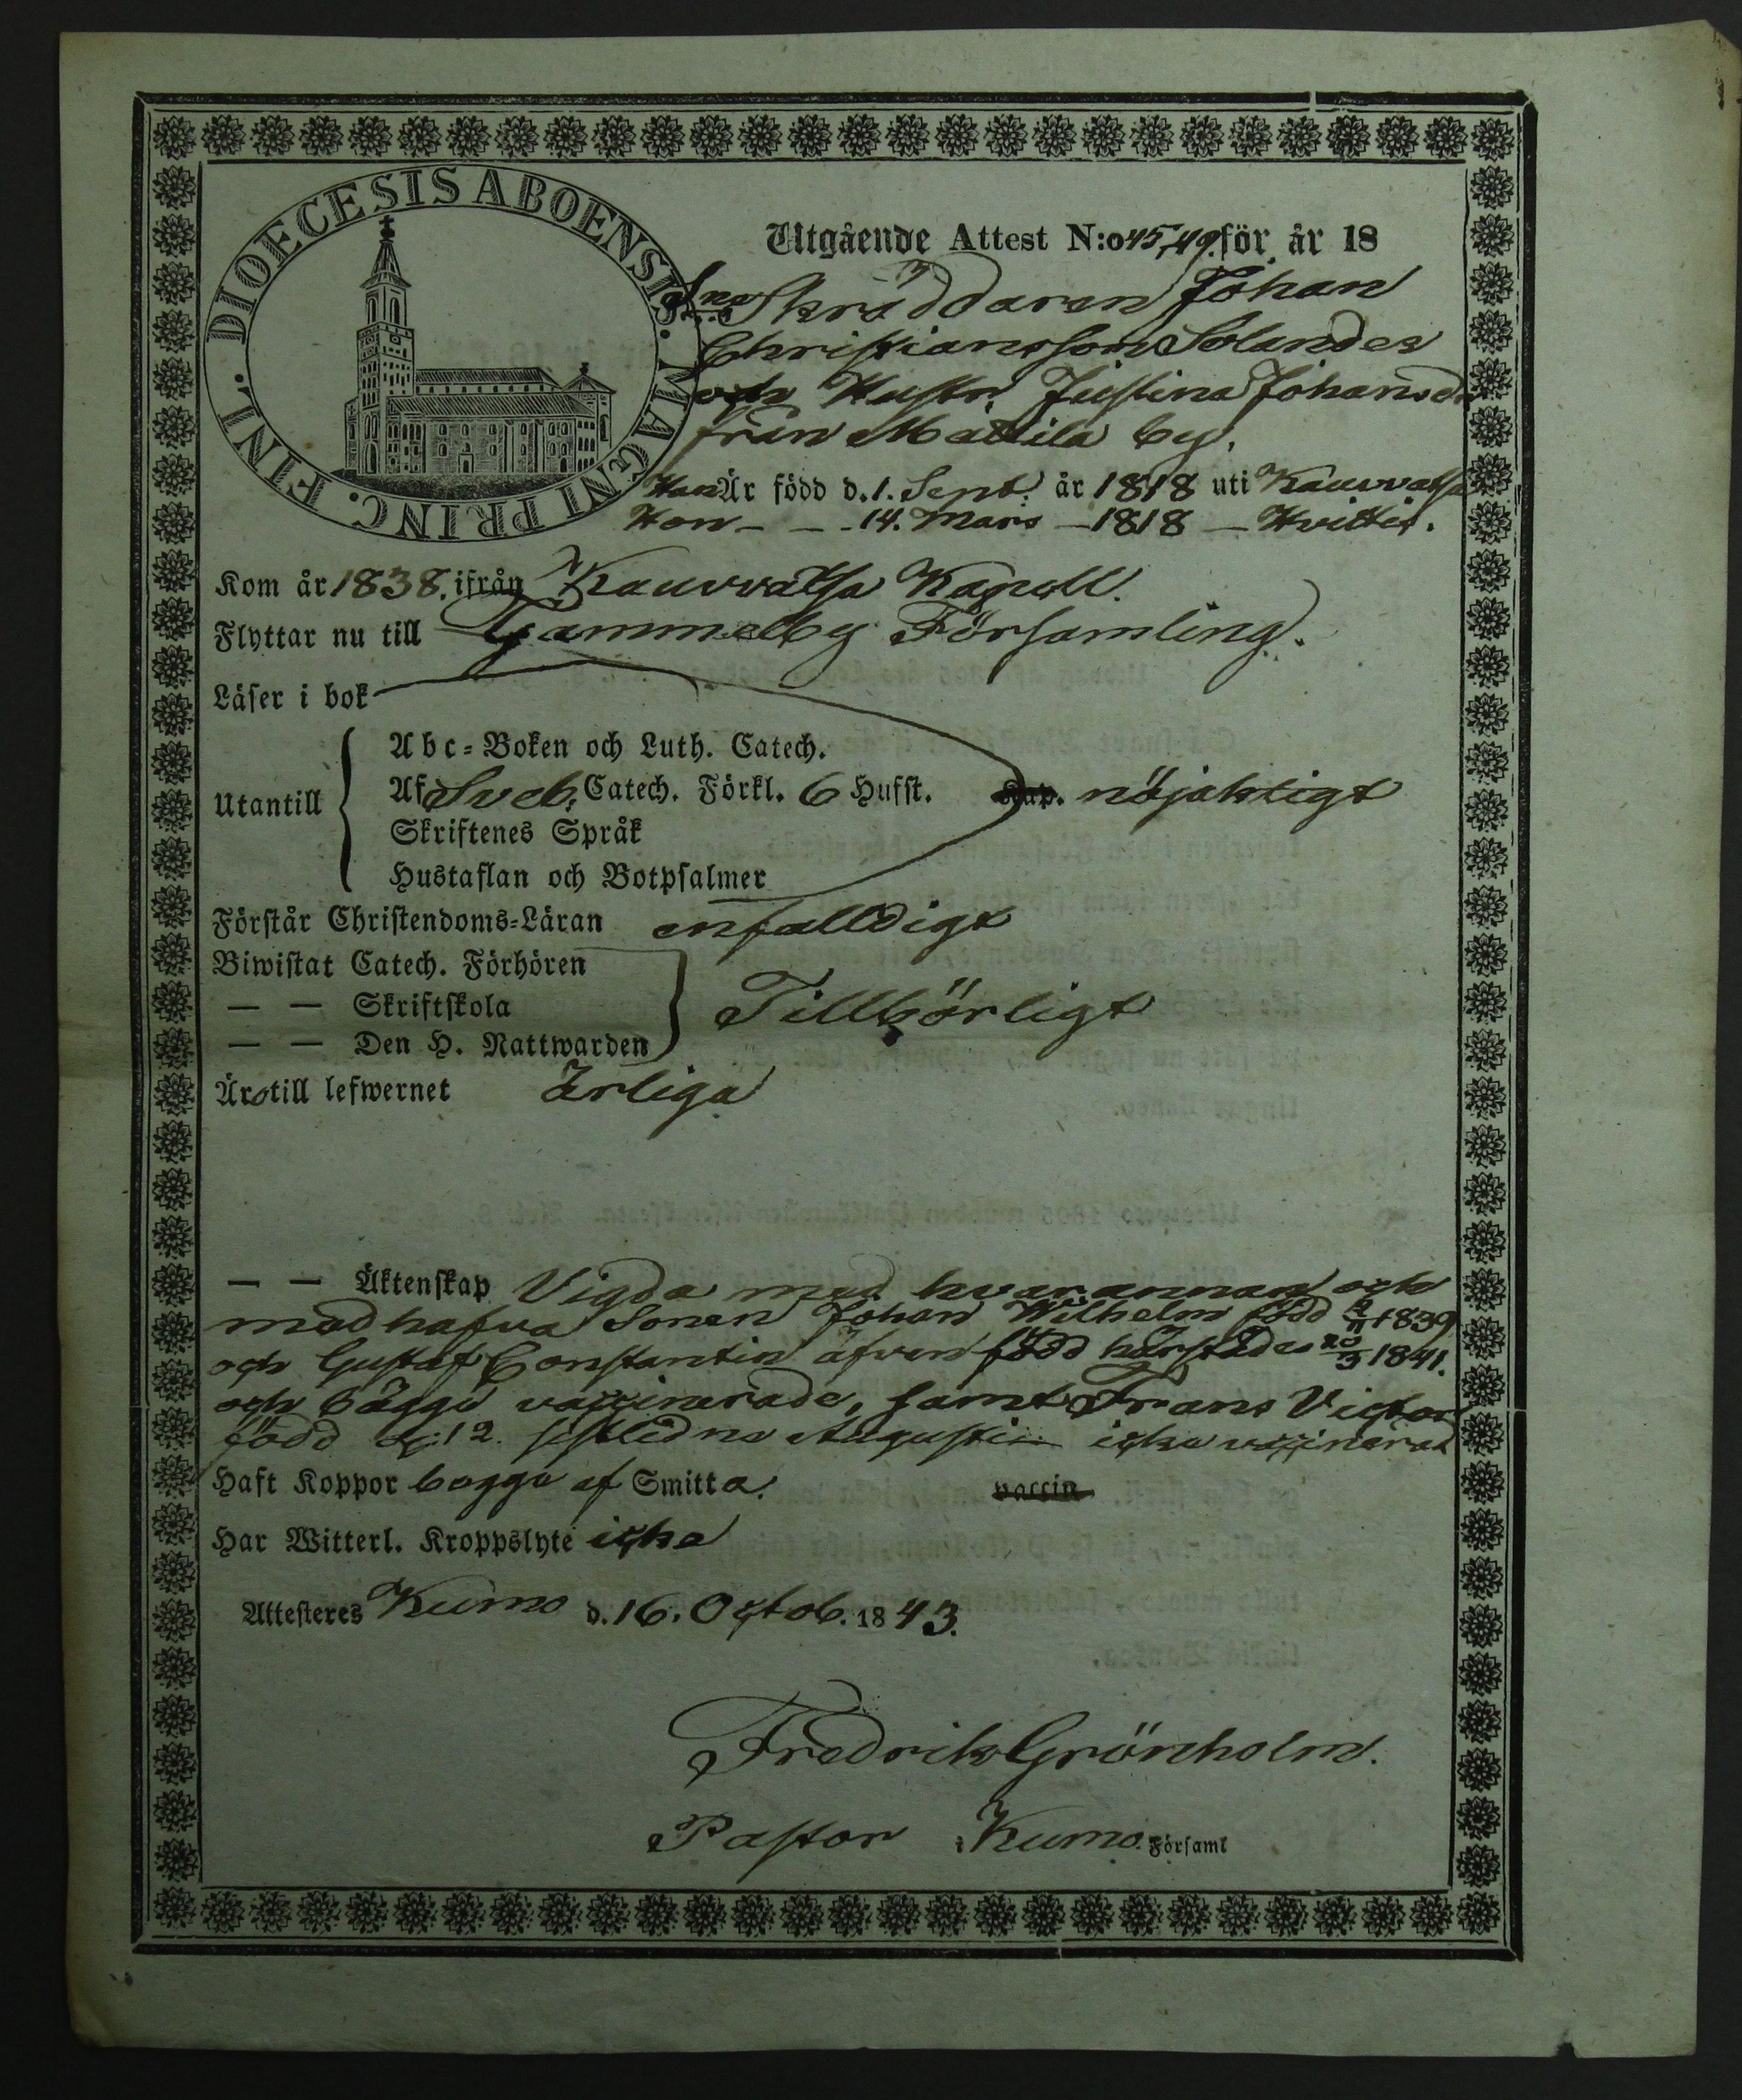 DIOECESIS ABOENSI. MAGNI PRINC. FINL.
Utgående Attest N:o 45,49. för år 18
Skräddaren Johan
Christiansson Solandes
och Hustr. Justina Johansdr
från Mattila by.
Han Är född d. 1. Sept. år 1818 uti Kauvatsa
Hon - - - 14. Mars - 1818 - Hvittis.
Kom år 1838. ifrån Kauvatsa Kapell.
Flyttar nu till Gammelby Församling.
Läser i bok
Utantill
Abc-Boken och Luth. Catech.
Af Sveb. Catech. Förkl. 6 Hufst. Kap. nöjaktigt
Skriftenes Språk
Hustaflan och Botpsalmer
Förstår Christendoms-Läran enfalldigt
Biwistat Catech. Förhören
— — Skriftskola Tillbörligt
— — Den H. Nattwarden
Äro till lefwernet Ärliga
— — Äktenskap Vigda med hvarannan och
medhafva Sonen Johan Wilhelm född 2/11 1839
och Gustaf Constantin äfven född härstädes 20/3 1841.
och bägge vaccinerade, samt Frans Victor
född d. 12. sistledne Augusti icke vaccinerad
Haft Koppor bägge af Smitta. vaccin.
Har Witterl. Kroppslyte icke
Attesteres Kumo d. 16. Octob. 1843.
Fredrik Grönholm.
Pastor i Kumo Församl